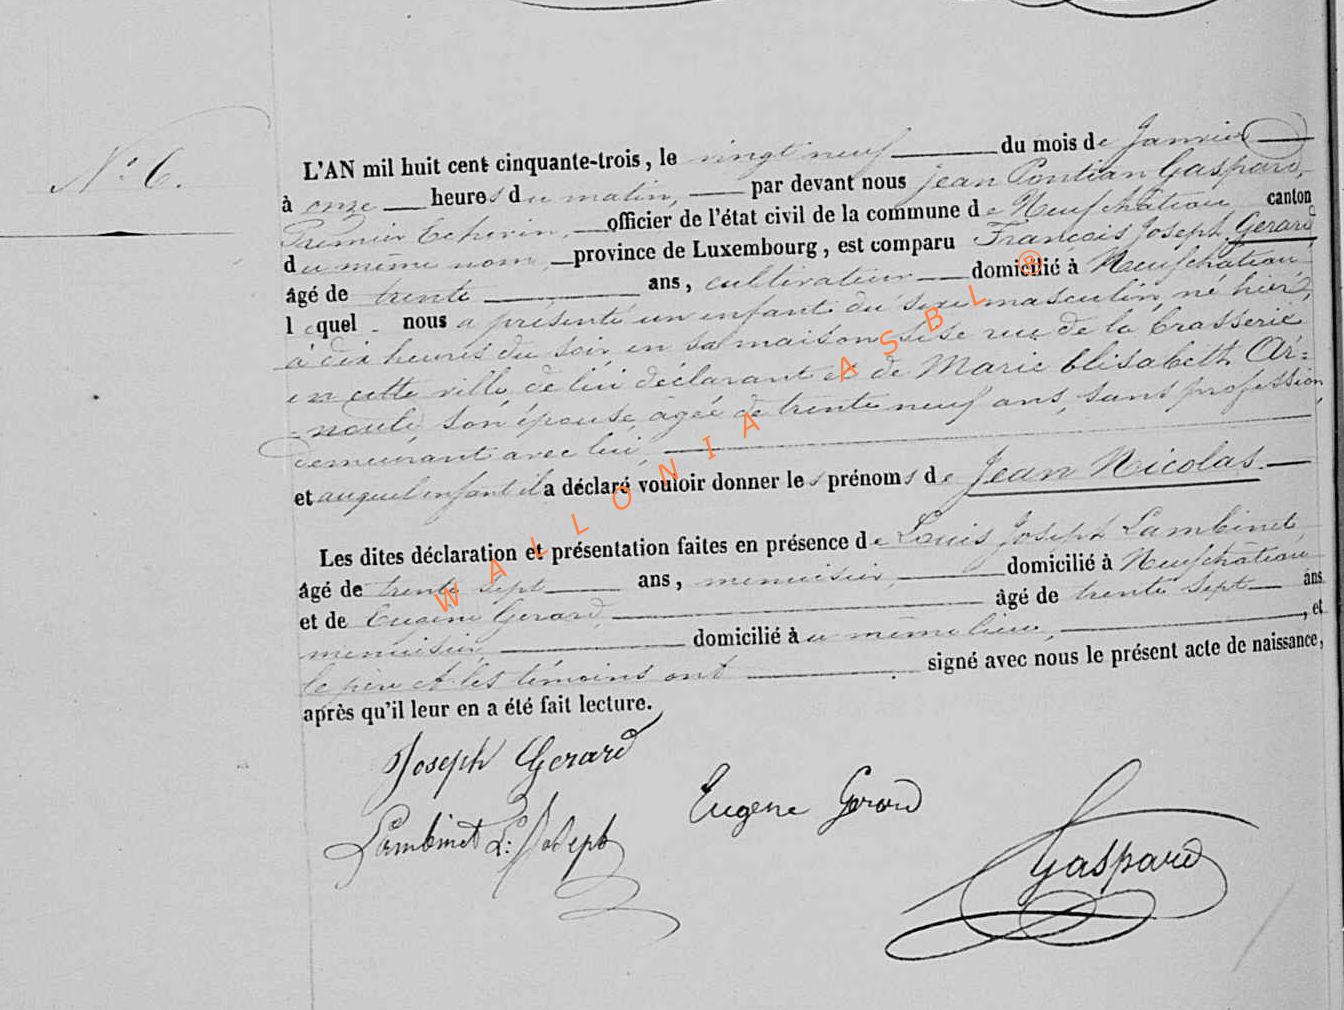 N.° 6.
L'AN mil huit cent cinquante-trois, le vingt neuf du mois de Janvier
à onze heures du matin, par devant nous Jean Pontian Gaspard,
Premier Echevin, officier de l'état civil de la commune de Neufchâteau canton
du même nom, province de Luxembourg, est comparu François Joseph Gerard
âgé de trente ans, cultivateur domicilié à Neufchateau
lequel nous a présenté un enfant du sexe masculin, né hier,
à dix heures du soir, en sa maison sise rue de la Brasserie
en cette ville, de lui déclarant et de Marie Elisabeth Ar=
nould, son épouse, âgée de trente neuf ans, sans profession,
demeurant avec lui,
et auquel enfant il a déclaré vouloir donner les prénoms de Jean Nicolas.
Les dites déclaration et présentation faites en présence de Louis Joseph Lambinet,
âgé de trente sept ans, menuisier, domicilié à Neufchâteau
et de Eugène Gerard, âgé de trente sept ans
menuisier domicilié au même lieu, , et
le père et les témoins ont signé avec nous le présent acte de naissance,
après qu'il leur en a été fait lecture.
Joseph Gerard
Eugene Gerard
Lambinet L: Joseph
Gaspard
WALLONIA ASBL ®